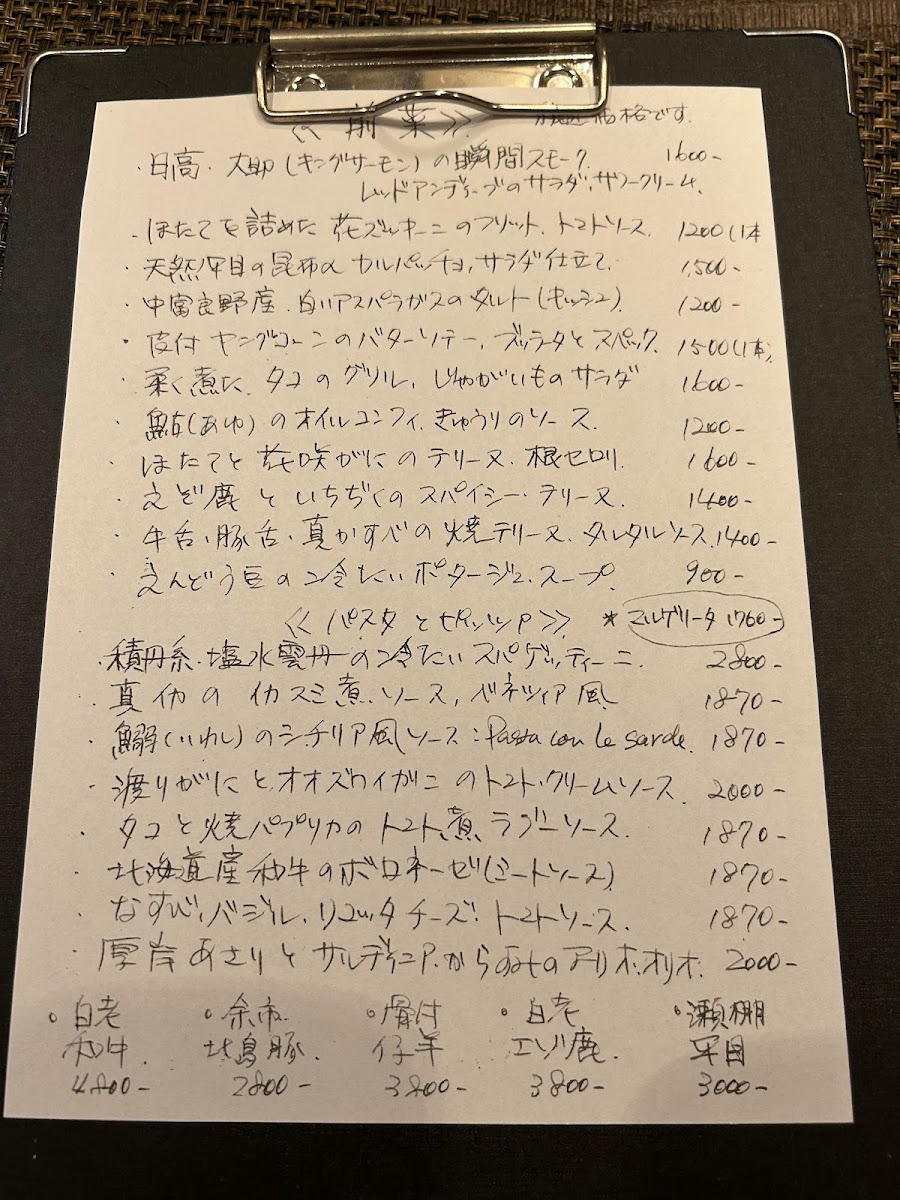 ≪ 前菜 ≫ 価格です.
・日高・大助(キングサーモン)の瞬間スモーク. 1600-
レッドアンディーブのサラダ、サワークリーム、
・ほたてを詰めた花ズッキーニのフリット、トマトソース. 1200(1本
・天然平目の昆布〆カルパッチョ、サラダ仕立て. 1,500-
・中富良野産、白いアスパラガスのタルト(キッシュ) 1200-
・皮付ヤングコーンのバターソテー、ブッラータとスペック. 1500(1本)
・柔く煮た、タコのグリル、じゃがいものサラダ 1600-
・鮎(あゆ)のオイルコンフィ、きゅうりのソース. 1200-
・ほたてと花咲がにのテリーヌ、根セロリ. 1600-
・えぞ鹿といちぢくのスパイシー・テリーヌ 1400-
・牛舌、豚舌・真かすべの焼テリーヌ、タルタルソース. 1400-
・えんどう豆の冷たいポタージュ、スープ. 900-
≪ パスタとピッツァ ≫ *マルゲリータ 1760-
・積丹糸.塩水雲丹の冷たいスパゲッティーニ. 2800-
・真イカのイカスミ煮、ソース、ベネツィア風 1870-
・鰯(いわし)のシチリア風ソース:Pasta con le sarde. 1870-
・渡りがにとオオズワイガニのトマト・クリームソース. 2000-
・タコと焼パプリカのトマト煮 ラグーソース. 1870-
・北海道産和牛のボロネーゼ(ミートソース) 1870-
・なすび、バジル、リコッタチーズ・トマトソース. 1870-
・厚岸あさりとサルディニアからすみのアーリオ・オーリオ. 2000-
・白老 ・余市 ・骨付 ・白老 ・瀬棚
和牛. 北島豚. 仔羊 エゾ鹿. 平目
4800- 2800- 3800- 3800- 3000-